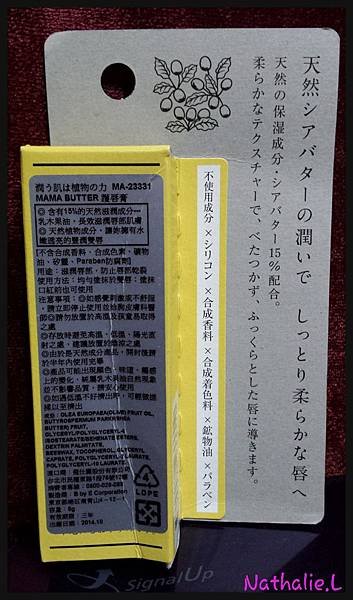 天然シアバターの潤いで しっとり柔らかな唇へ
天然の保湿成分・シアバター15%配合。
柔らかなテクスチャーで、べたつかず、ふっくらとした唇に導きます。
不使用成分 ×シリコン ×合成香料 ×合成着色料 ×鉱物油 ×パラベン
潤う肌は植物の力 MA-23331
MAMA BUTTER 護唇膏
◎含有15%的天然滋潤成分──
乳木果油,長效滋潤唇部肌膚
◎天然植物成分,讓妳擁有水
嫩透亮的豐潤雙唇
【不含合成香料、合成色素、礦物
油、矽靈、Paraben防腐劑】
用途:滋潤唇部,防止唇部乾裂
使用方法:均勻塗抹於唇部;塗抹
口紅前也可使用
注意事項:◎如感覺刺激或不舒服
,請立即停止使用並洽詢皮膚科醫
師◎請勿放置於高溫及孩童易取得
之處
◎存放時避至高溫、低溫、陽光直
射之處,建議放置於陰涼之處
◎由於是天然成分產品,開封後請
於半年內使用完畢
◎產品可能出現顏色、味道、觸感
上的變化,純屬乳木果油自然現象
並不影響品質,請安心使用
◎如遇低溫不好擠出時,可輕微搓
揉以至擠出
成分:OLEA EUROPAEA(OLIVE) FRUIT OIL,
BUTYROSPERMUM PARKII(SHEA
BUTTER) FRUIT,
GLYCERYL/POLYGLYCERYL-6
ISOSTEARATE/BEHENATE ESTERS,
DEXTRIN PALMITATE,
BEESWAX, TOCOPHEROL, GLYCERYL
CAPRATE, POLYGLYCERYL-2 LAURATE,
POLYGLYCERYL-10 LAURATE.
消費者服務專線:0800-028-689
製造商:B by E Corporation
容量:8g
有效期限:三年
出廠日期:2014.10
4
LDPE
SignalUp
Nathalie.L